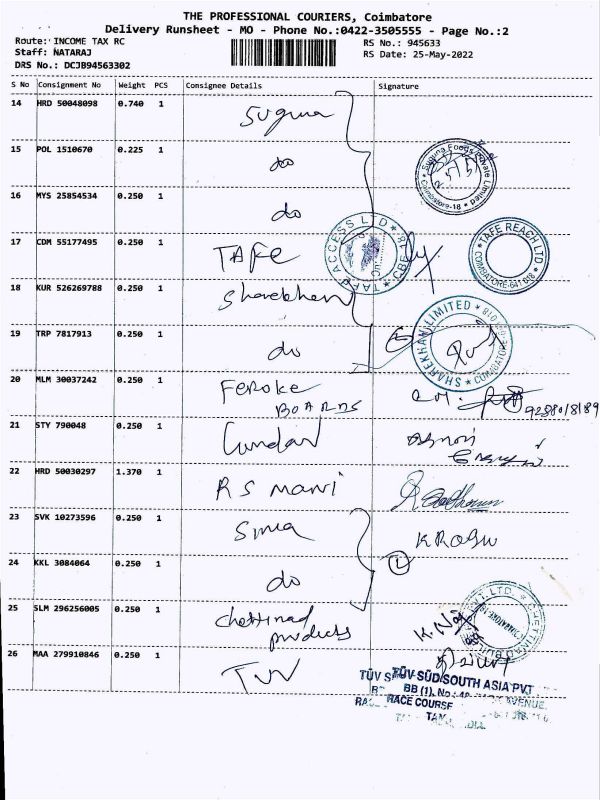 THE PROFESSIONAL COURIERS, Coimbatore
Delivery Runsheet - MO - Phone No.:0422-3505555 - Page No.:2
Route: INCOME TAX RC
RS No.: 945633
Staff: NATARAJ
RS Date: 25-May-2022
DRS No.: DCJB94563302
S No Consignment No Weight PCS Consignee Details Signature
14 HRD 50048098 0.740 1 Suguna
15 POL 1510670 0.225 1 do
Suguna Foods Private Limited * Coimbatore-18 *
16 MYS 25854534 0.250 1 do
17 CDM 55177495 0.250 1 TAFE
TAFE ACCESS LTD * CBE-18 *
* TAFE REACH LTD * COIMBATORE-641 018
18 KUR 526269788 0.250 1 Sharekhan
19 TRP 7817913 0.250 1 do
* SHAREKHAN LIMITED * COIMBATORE-641 018
20 MLM 30037242 0.250 1 Feroke BOARDS
9288018189
21 STY 790048 0.250 1
22 HRD 50030297 1.370 1 R S mani
23 SVK 10273596 0.250 1
24 KKL 3084064 0.250 1 do
25 SLM 296256005 0.250 1 chettinad products
26 MAA 279910846 0.250 1 TUV
TÜV SÜD SOUTH ASIA PVT
BB (1), No.: AVENUE,
RACE COURSE